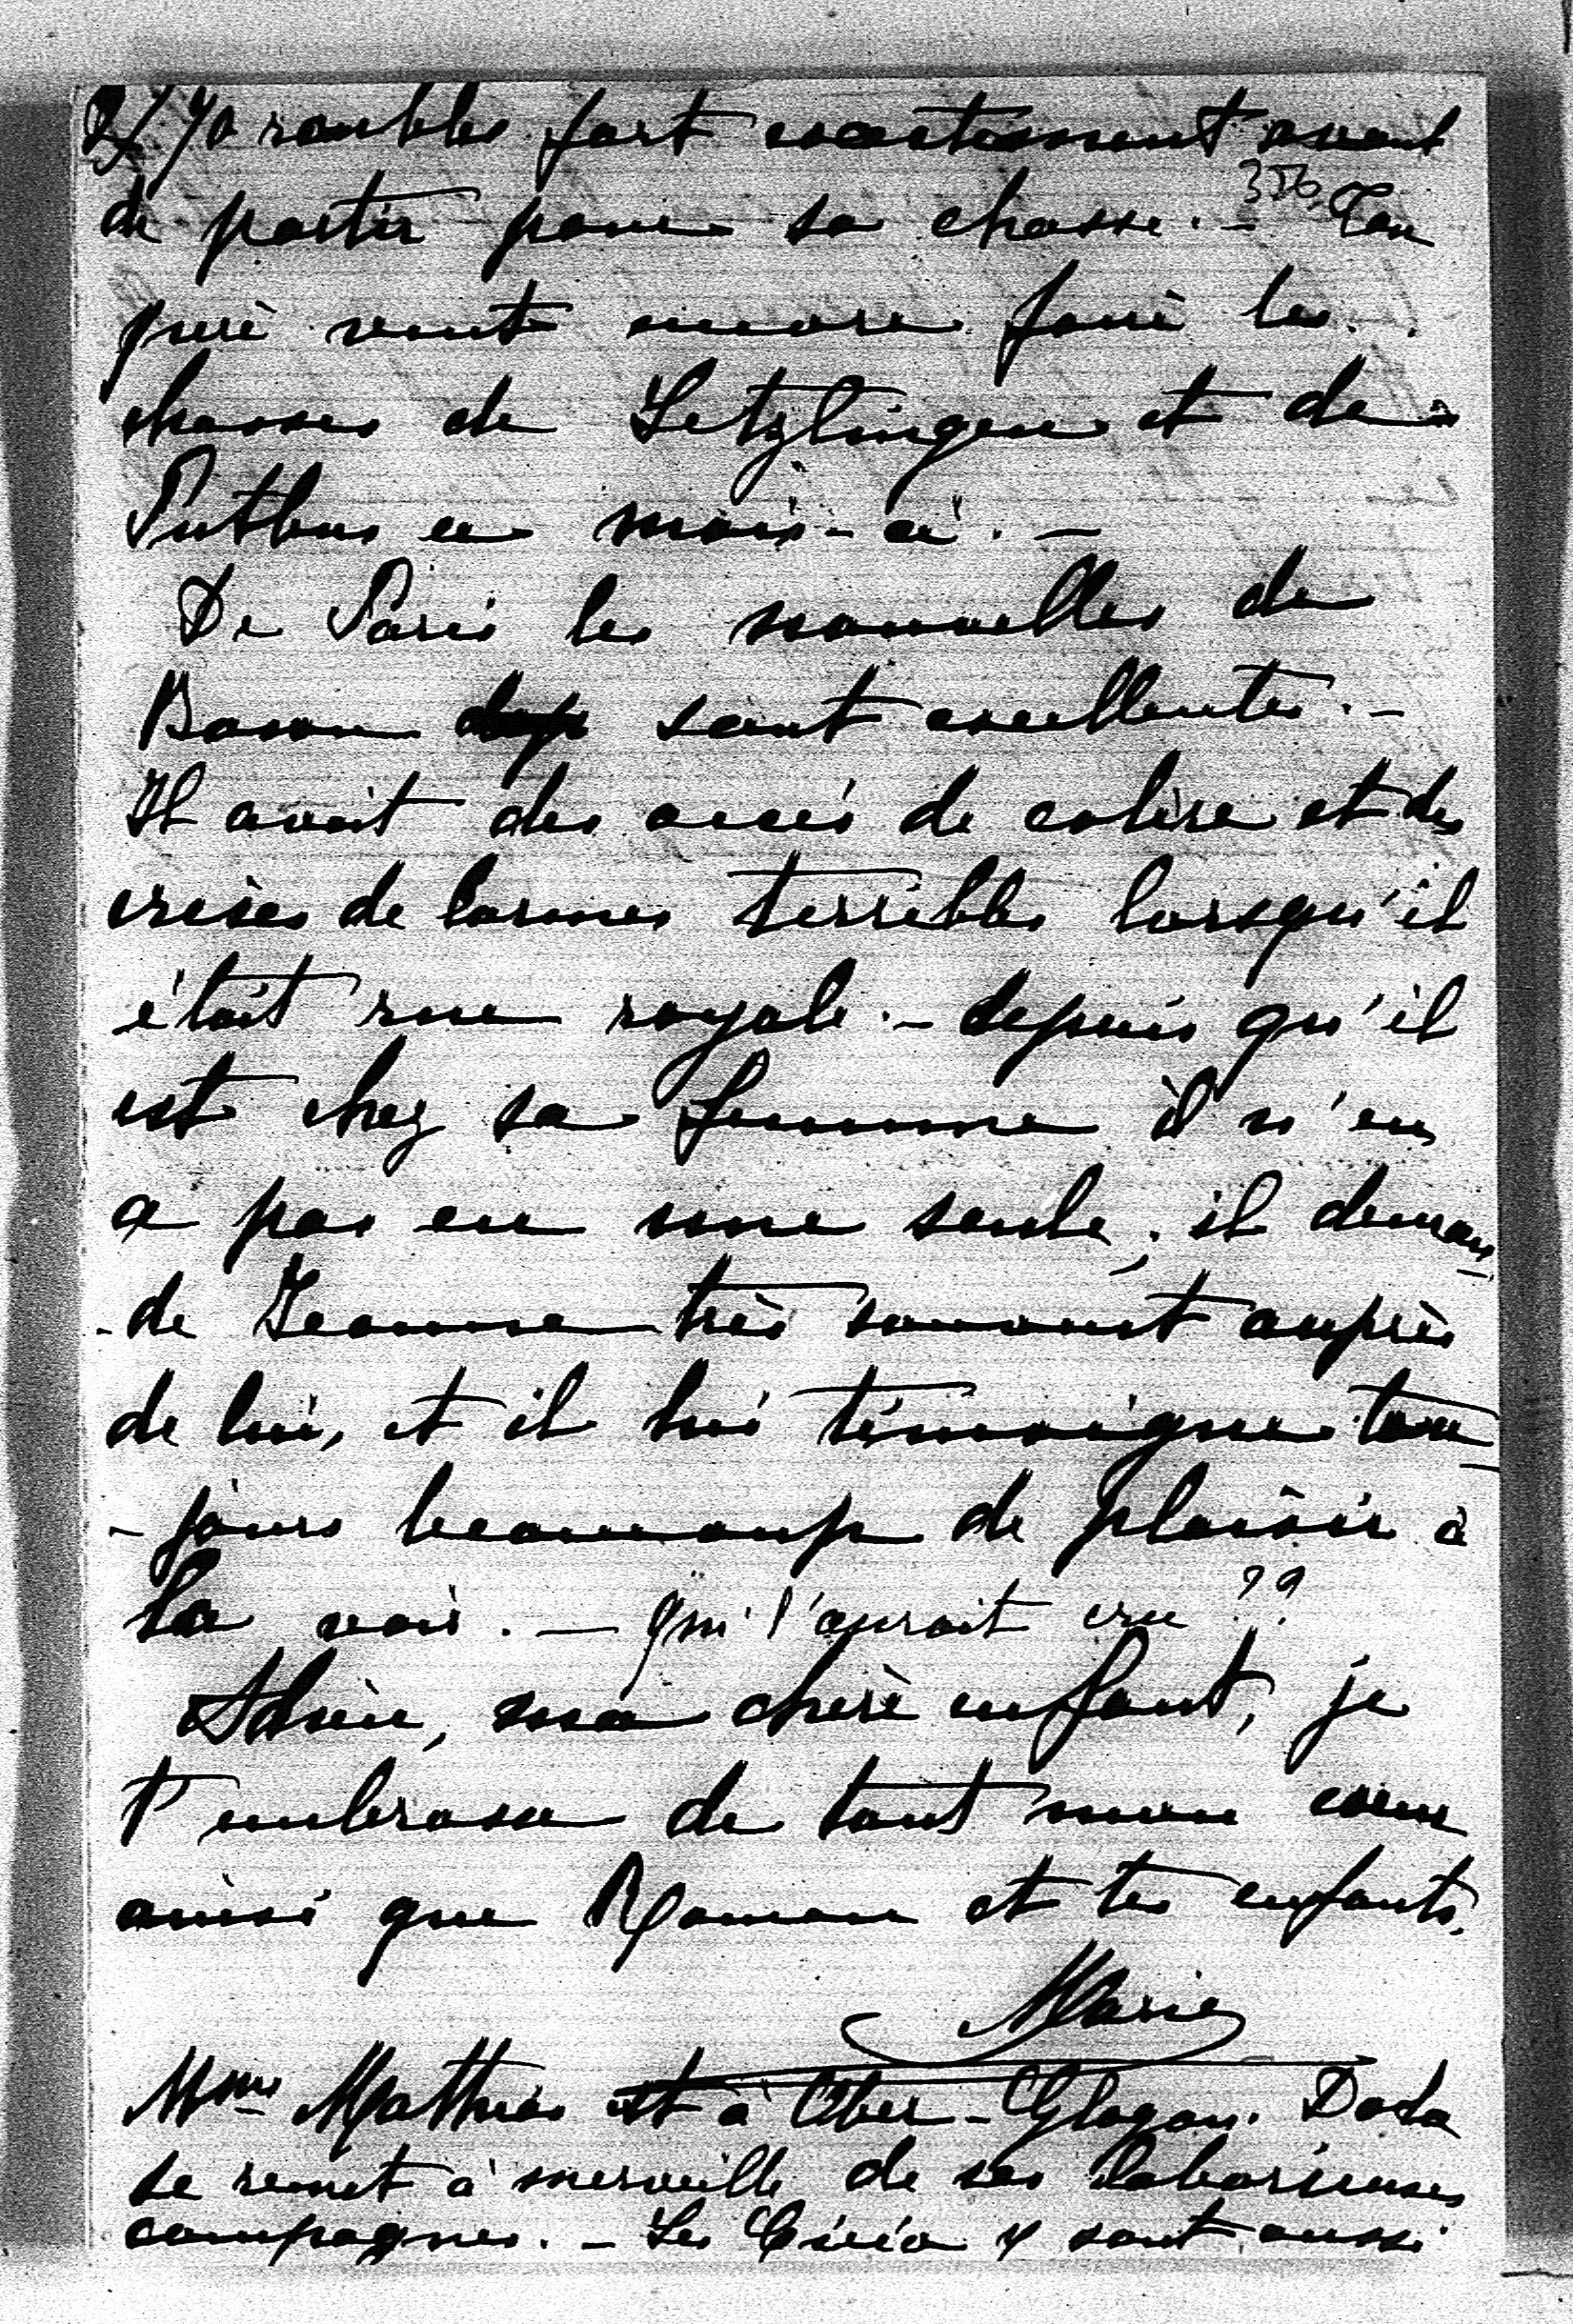 2/ 70 roubles fort exactement avant
de partir pour sa chasse. - Ton
père veut encore faire les
chasses de Letzlingen et de
Putbus ce mois-ci. -
De Paris les nouvelles de
Boson sont excellentes. -
Il avait des accès de colère et des
crises de larmes terribles lorsqu'il
était rue royale. - depuis qu'il
est chez sa femme il n'en
a pas eu une seule; il deman-
-de Jeanne très souvent auprès
de lui, et il lui témoigne tou-
-jours beaucoup de plaisir à
la voir. - Qui l'aurait cru??
Adieu, ma chère enfant, je
t'embrasse de tout mon coeur
ainsi que Roman et tes enfants.
Marie
Mme Mathias est à Ober-Glogau. Doda
se remet à merveille de ses laborieuses
campagnes. - Les y sont aussi